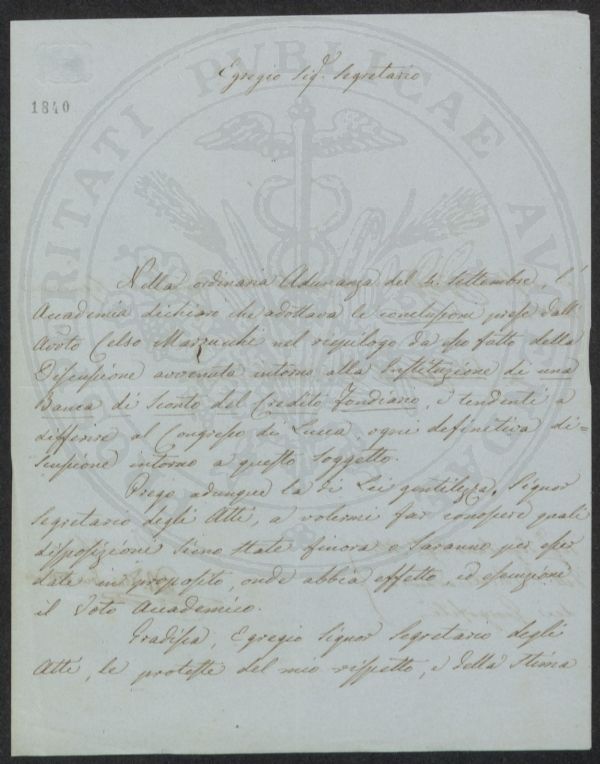 Egregio Sig.r Segretario
1840
PROSPERITATI PVBLICAE AVGENDAE
Nella ordinaria Adunanza del 4. Settembre, l'
Accademia dichiarò che adottava le conclusioni prese dall'
Avvto Celso Marzucchi nel riepilogo da esso fatto della
Discussione avvenuta intorno alla Instituzione di una
Banca di Sconto del Credito Fondiario, e tendenti a
differire al Congresso di Lucca, ogni definitiva di=
scussione intorno a questo soggetto.
Prego adunque la di Lei gentilezza, Signor
Segretario degli Atti, a volermi far conoscere quali
disposizione sieno state finora o saranno per esser
date in proposito, onde abbia effetto, ed esecuzione
il Voto Accademico.
Gradisca, Egregio Signor Segretario degli
Atti, le proteste del mio rispetto, e della stima